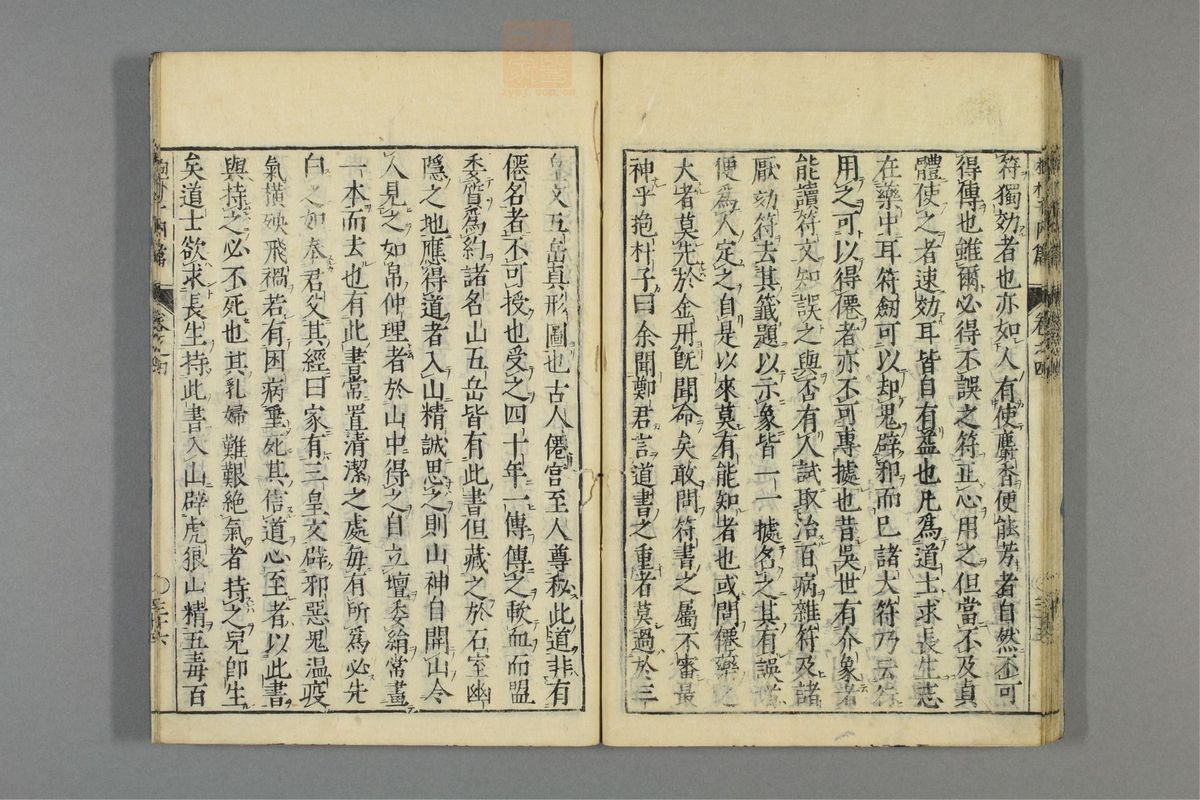 符獨効者也亦如人有使麝香便能芳者自然不可
得傳也雖爾必得不誤之符正心用之但當不及真
體使之者速効耳皆自有益也凡為道士求長生志
在藥中耳符劒可以却鬼辟邪而已諸大符乃云行
用之可以得僊者亦不可專據也昔吳世有介象者
能讀符文知誤之與否有人試取治百病雜符及諸
厭効符去其籤題以示象皆一一據名之其有誤者
便為人定之自是以來莫有能知者也或問僊藥之
大者莫先於金丹既聞命矣敢問符書之屬不審最
神乎抱朴子曰余聞鄭君言道書之重者莫過於三
皇文五岳真形圖也古人僊官至人尊秘此道非有
僊名者不可授也受之四十年一傳傳之歃血而盟
委質為約諸名山五岳皆有此書但藏之於石室幽
隱之地應得道者入山精誠思之則山神自開山令
人見之如帛仲理者於山中得之自立壇委絹常畫
一本而去也有此書常置清潔之處每有所為必先
白之如奉君父其經曰家有三皇文辟邪惡鬼温疫
氣橫殃飛禍若有困病垂死其信道心至者以此書
與持之必不死也其乳婦難艱絕氣者持之兒即生
矣道士欲求長生持此書入山辟虎狼山精五毒百
抱朴子內篇
卷之四
三十六